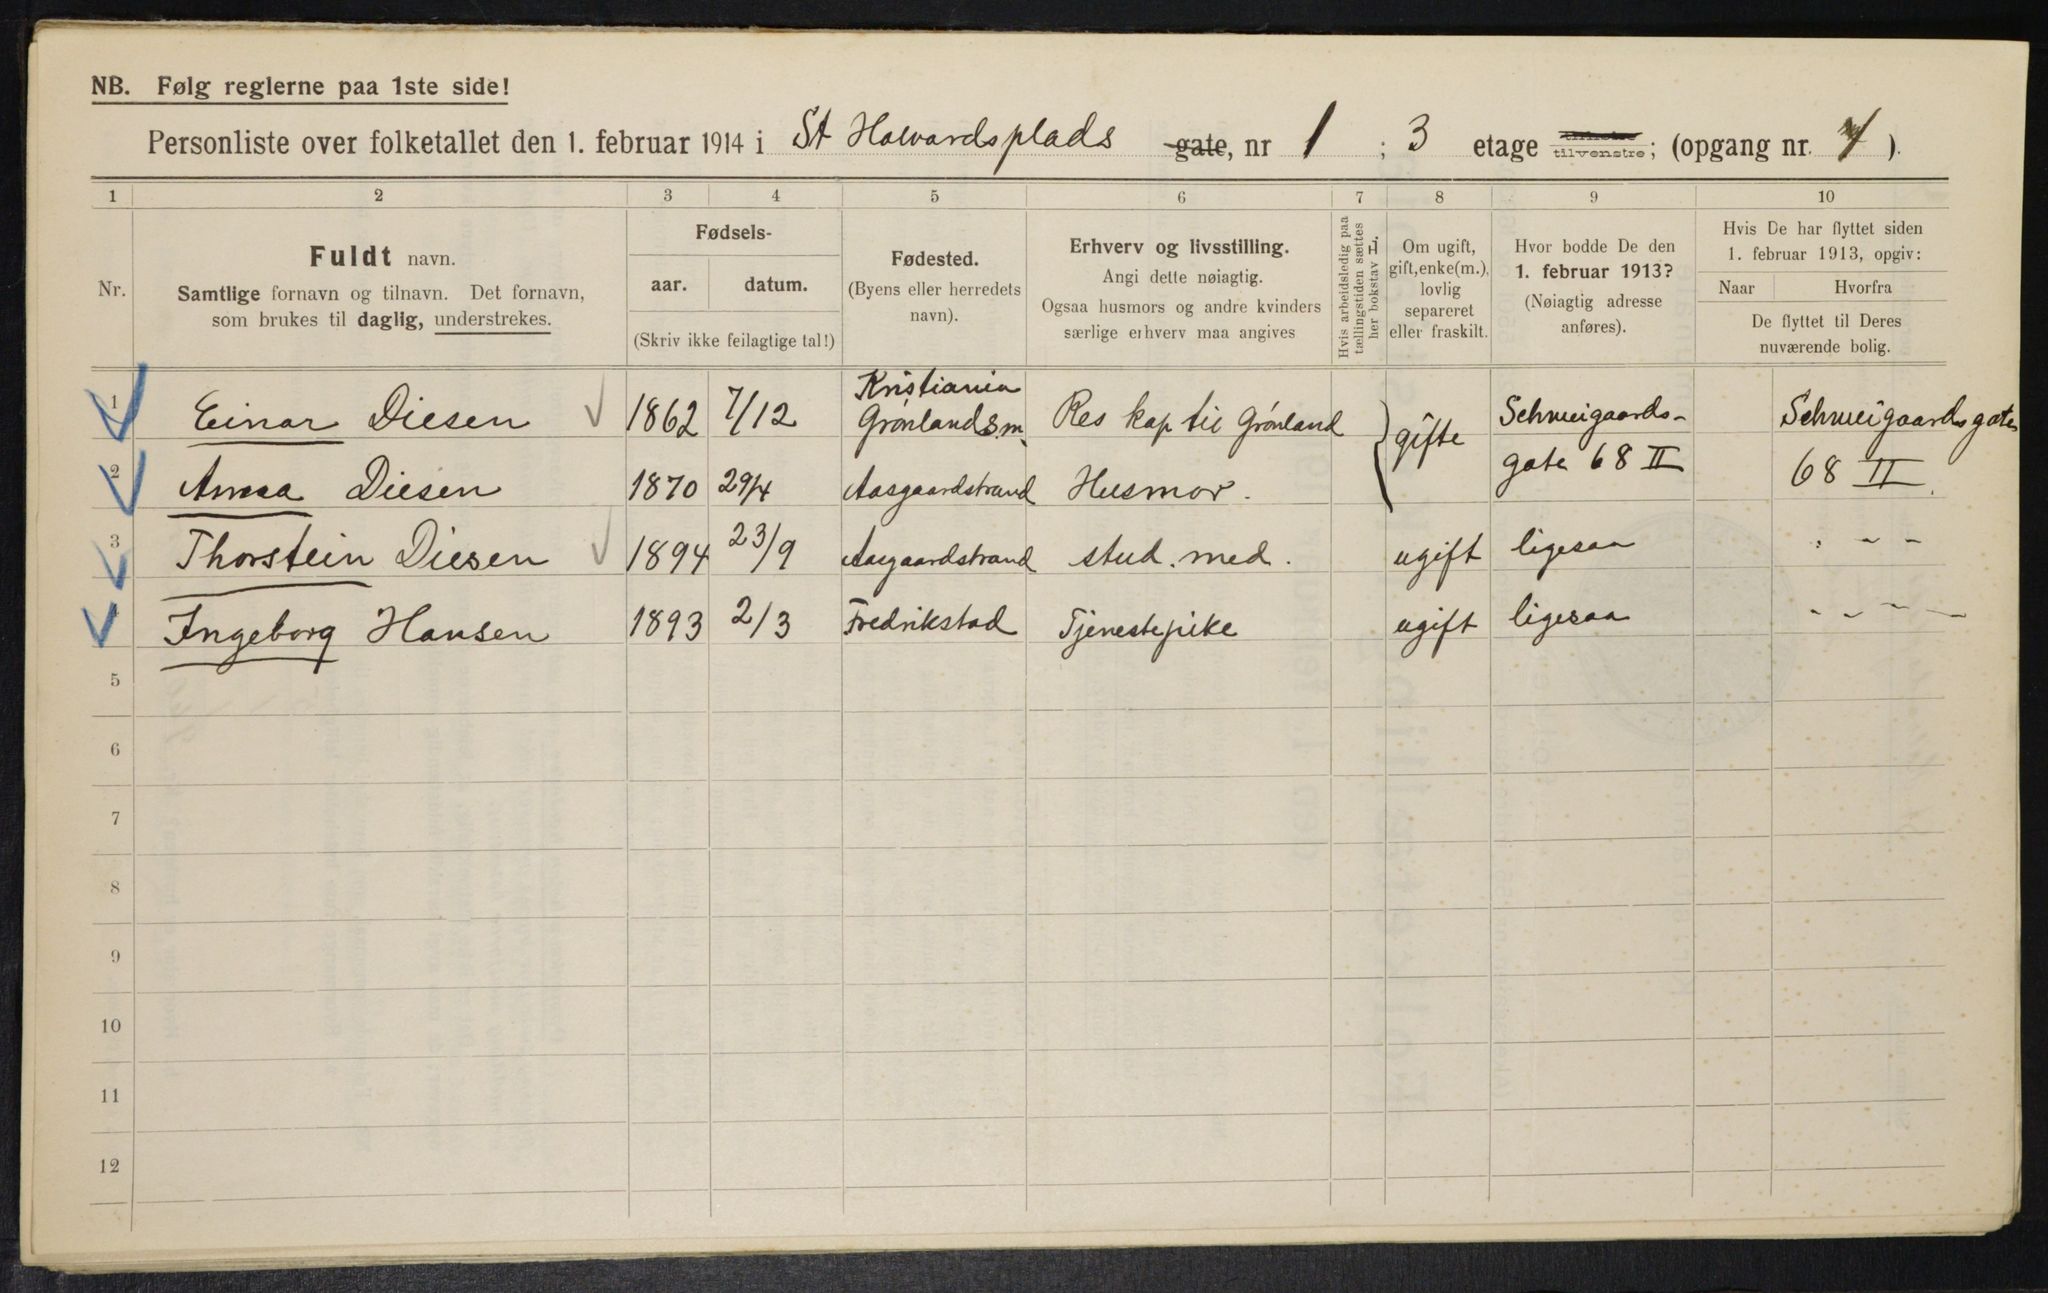 NB. Følg reglerne paa 1ste side!
Personliste over folketallet den 1. februar 1914 i St Halvardsplads gate, nr 1 ; 3 etage tilvenstre; (opgang nr. 4).
1 2 3 4 5 6 7 8 9 10
Nr.
Fuldt navn.
Samtlige fornavn og tilnavn. Det fornavn,
som brukes til daglig, understrekes.
Fødsels-
aar. datum.
(Skriv ikke feilagtige tal!)
Fødested.
(Byens eller herredets
navn).
Erhverv og livsstilling.
Angi dette nøiagtig.
Ogsaa husmors og andre kvinders
særlige erhverv maa angives
Hvis arbeidsledig paa
tællingstiden sættes
her bokstav L.
Om ugift,
gift, enke(m.),
lovlig
separeret
eller fraskilt.
Hvor bodde De den
1. februar 1913?
(Nøiagtig adresse
anføres).
Hvis De har flyttet siden
1. februar 1913, opgiv:
Naar Hvorfra
De flyttet til Deres
nuværende bolig.
1 Einar Diesen 1862 7/12 Kristiania
Grønlands.m. Res kap til Grønland gifte Schweigaards-
gate 68 II Schweigaardsgate
68 II
2 Anna Diesen 1870 29/4 Aasgaardstrand Husmor.
3 Thorstein Diesen 1894 23/9 Aasgaardstrand stud. med. ugift ligesaa " - -
4 Ingeborg Hansen 1893 2/3 Fredrikstad Tjenestepike ugift ligesaa - - - -
5
6
7
8
9
10
11
12